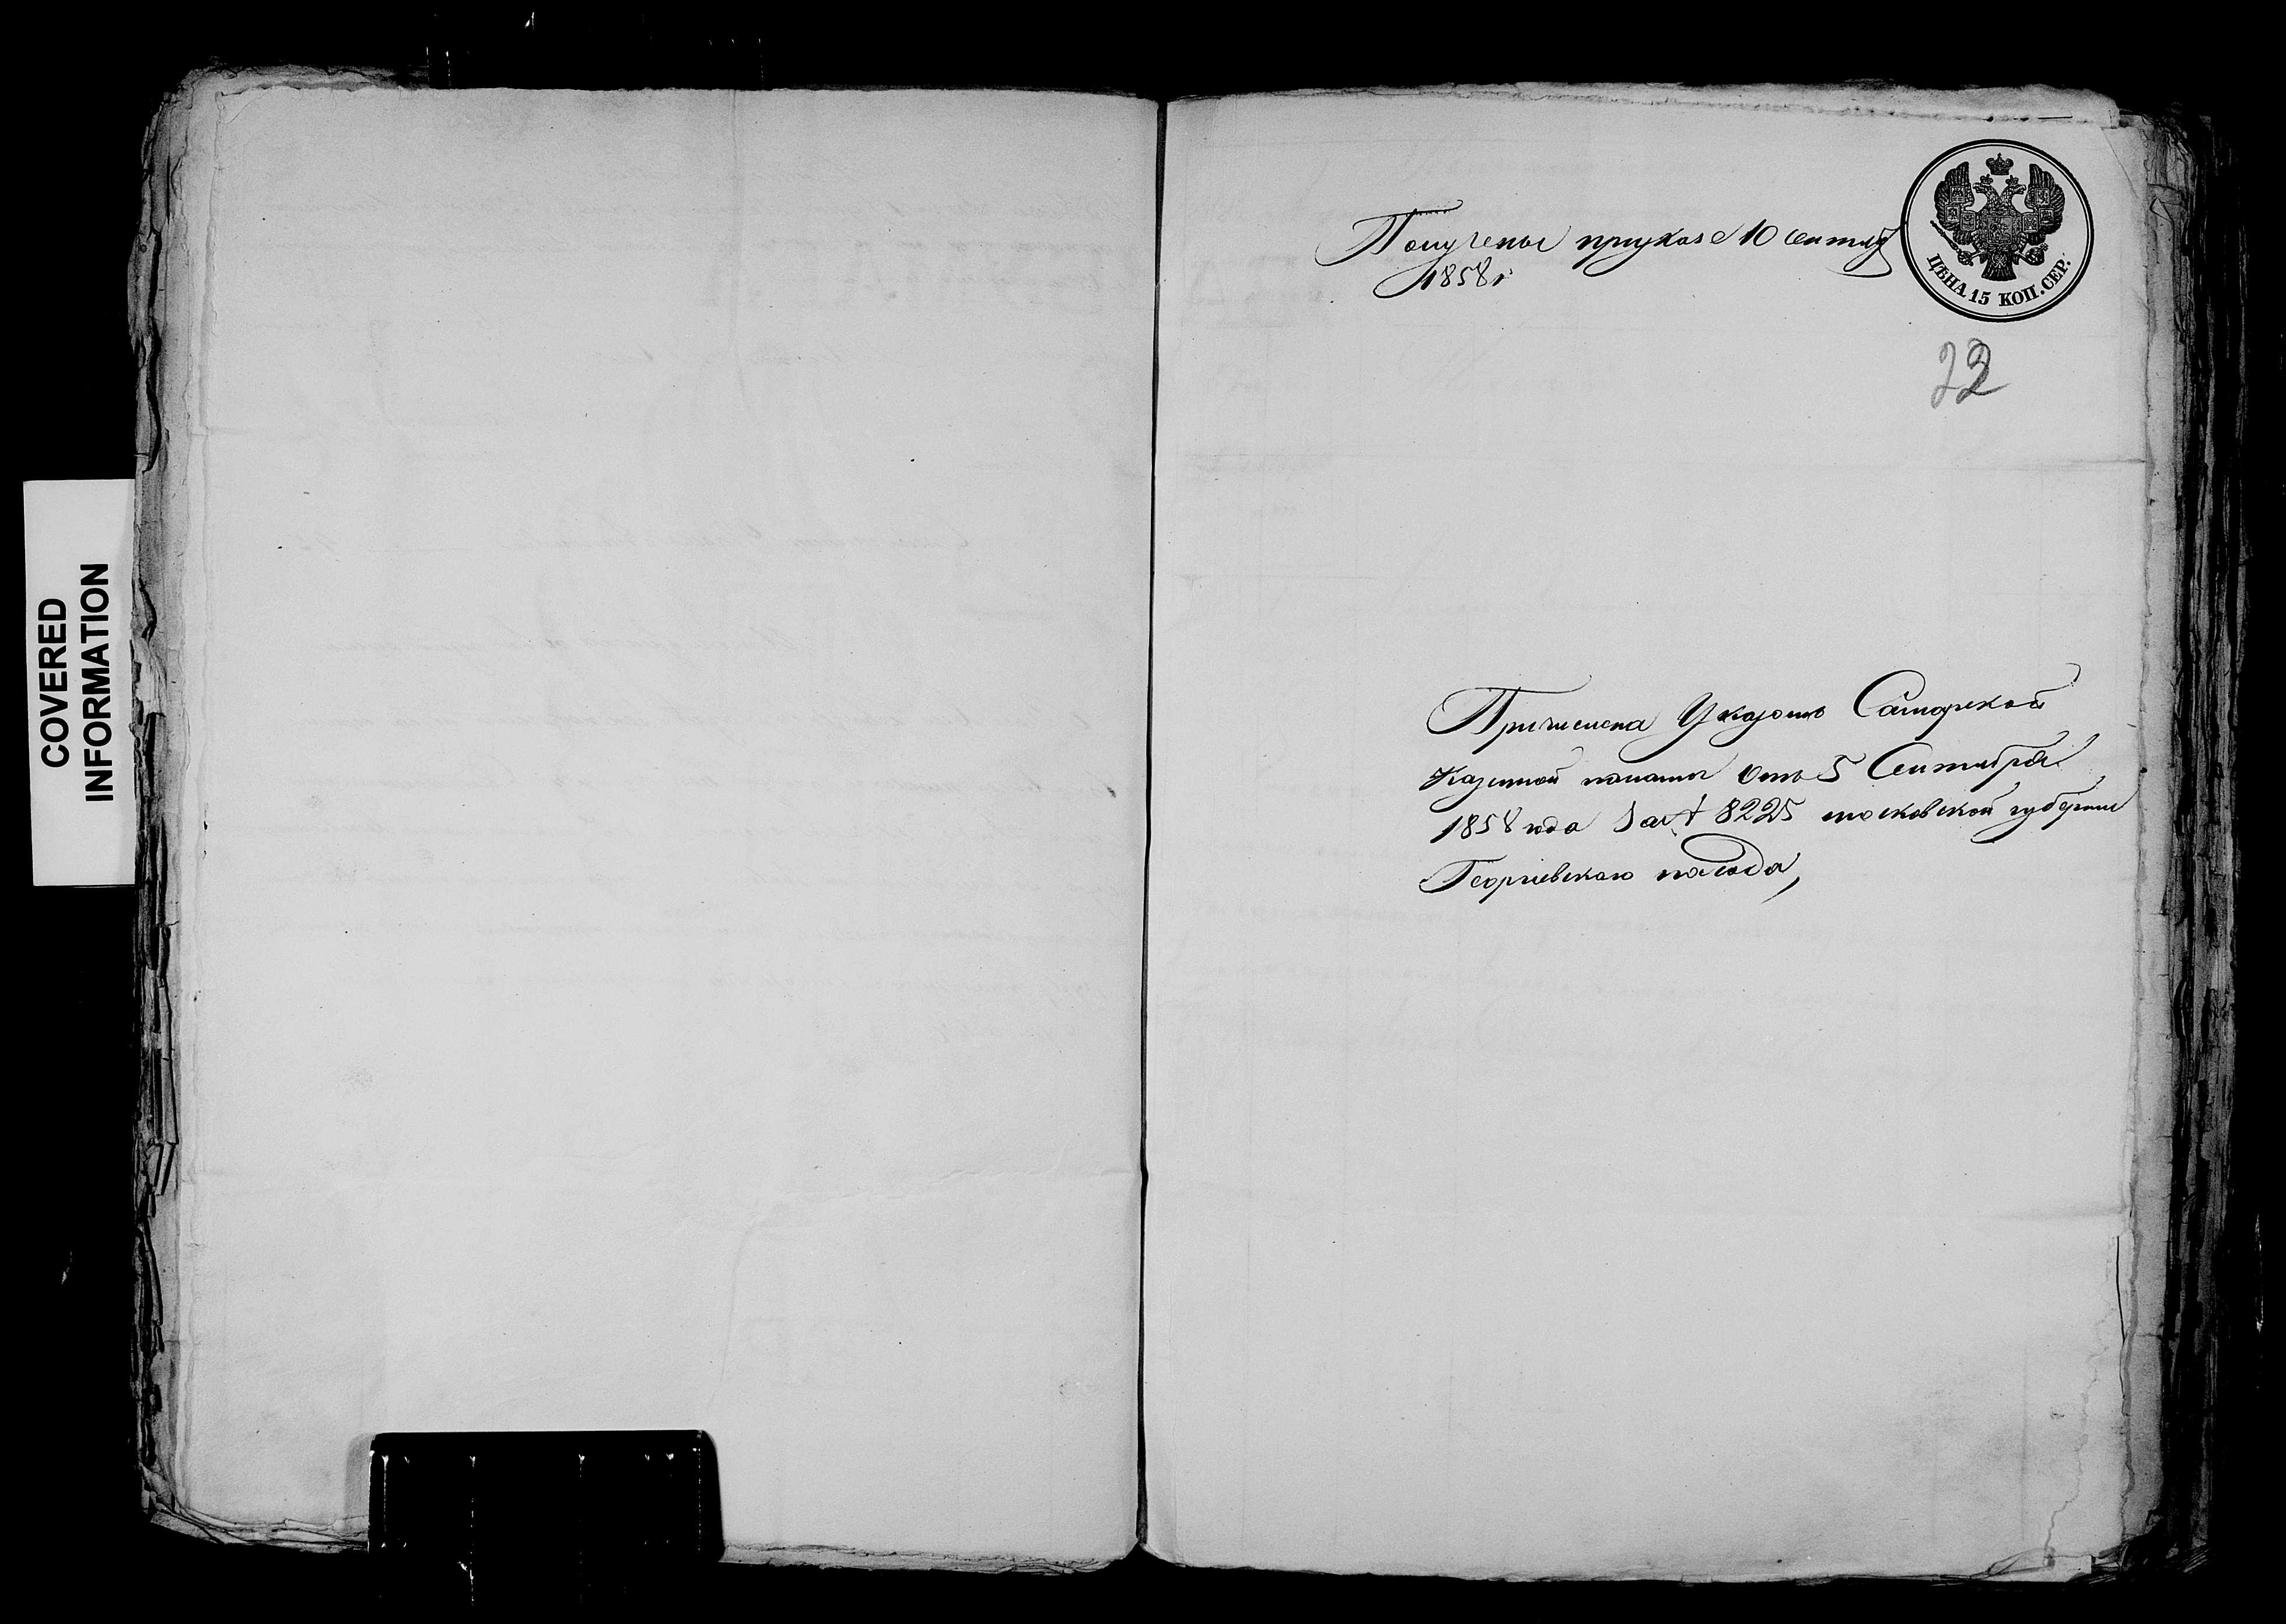 Получены при указе 10 сентяб
1858 г
ЦѢНА 15 КОП. СЕР.
22
Причислена Указомъ Самарской
Казенной палаты отъ 5 Сентября
1858 года за № 8225 московской губернии
Георгіевскаго посада,
COVERED
INFORMATION